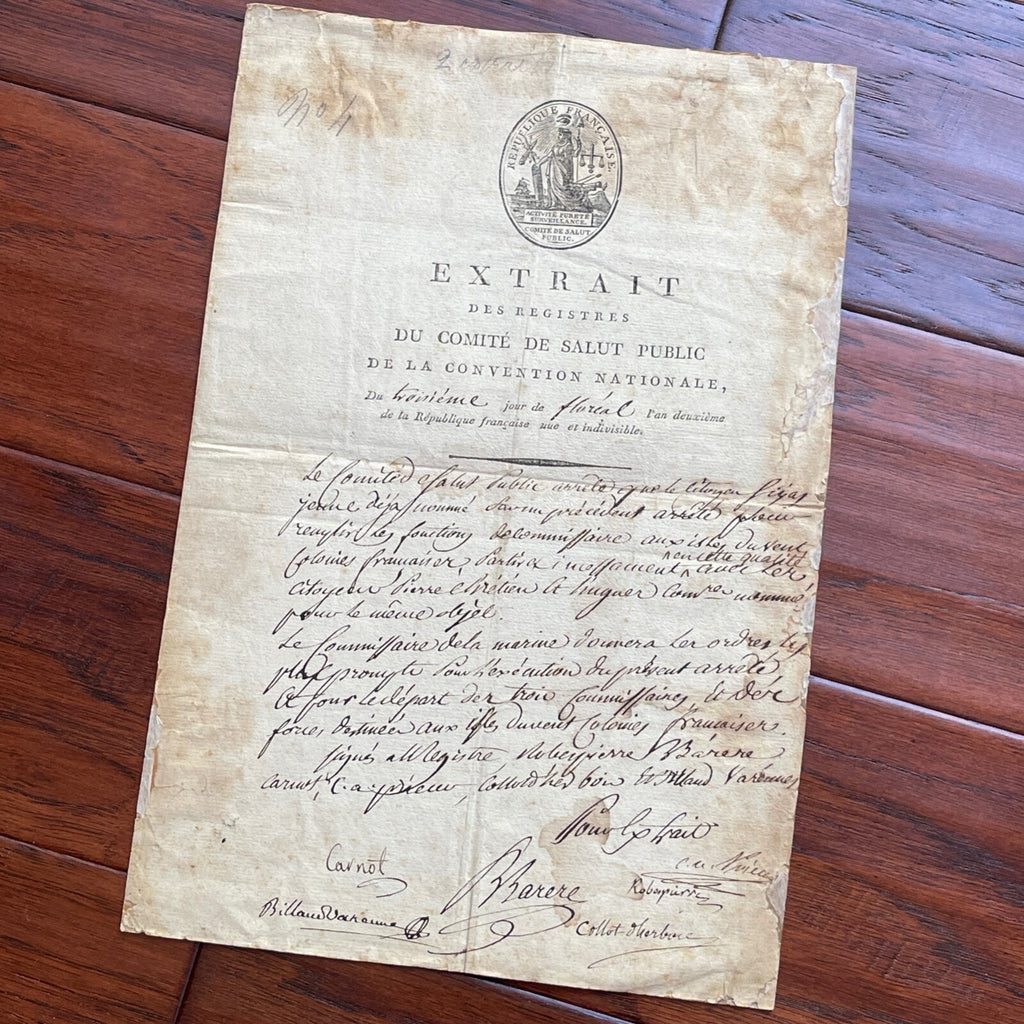 No 4
RÉPUBLIQUE FRANÇAISE.
ACTIVITÉ PURETÉ
SURVEILLANCE.
COMITÉ DE SALUT
PUBLIC.
EXTRAIT
DES REGISTRES
DU COMITÉ DE SALUT PUBLIC
DE LA CONVENTION NATIONALE,
Du troisiéme jour de floréal l'an deuxième
de la République française une et indivisible.
Le Comité de Salut Public arrête que le Citoyen
jeune déja nommé par un précédent arrêté pour
remplir les fonctions de Commissaire aux isles du vent
en cette qualité
Colonies françaises, partira incessament avec les
Citoyens Pierre Chrétien et hugues Comres nommés
pour le même objet.
Le Commissaire de la marine donnera les ordres les
plus prompts pour l'exécution du présent arrêté
et pour le départ des trois Commissaires et des
forces destinées aux isles du vent Colonies françaises.
signés au Registre, Robespierre Barere
Carnot, C. a. prieur, Collot d'herbois et Billaud Varennes
Pour Extrait
Carnot
BBarere
Robespierre
Billaud Varenne
Collot d'herbois